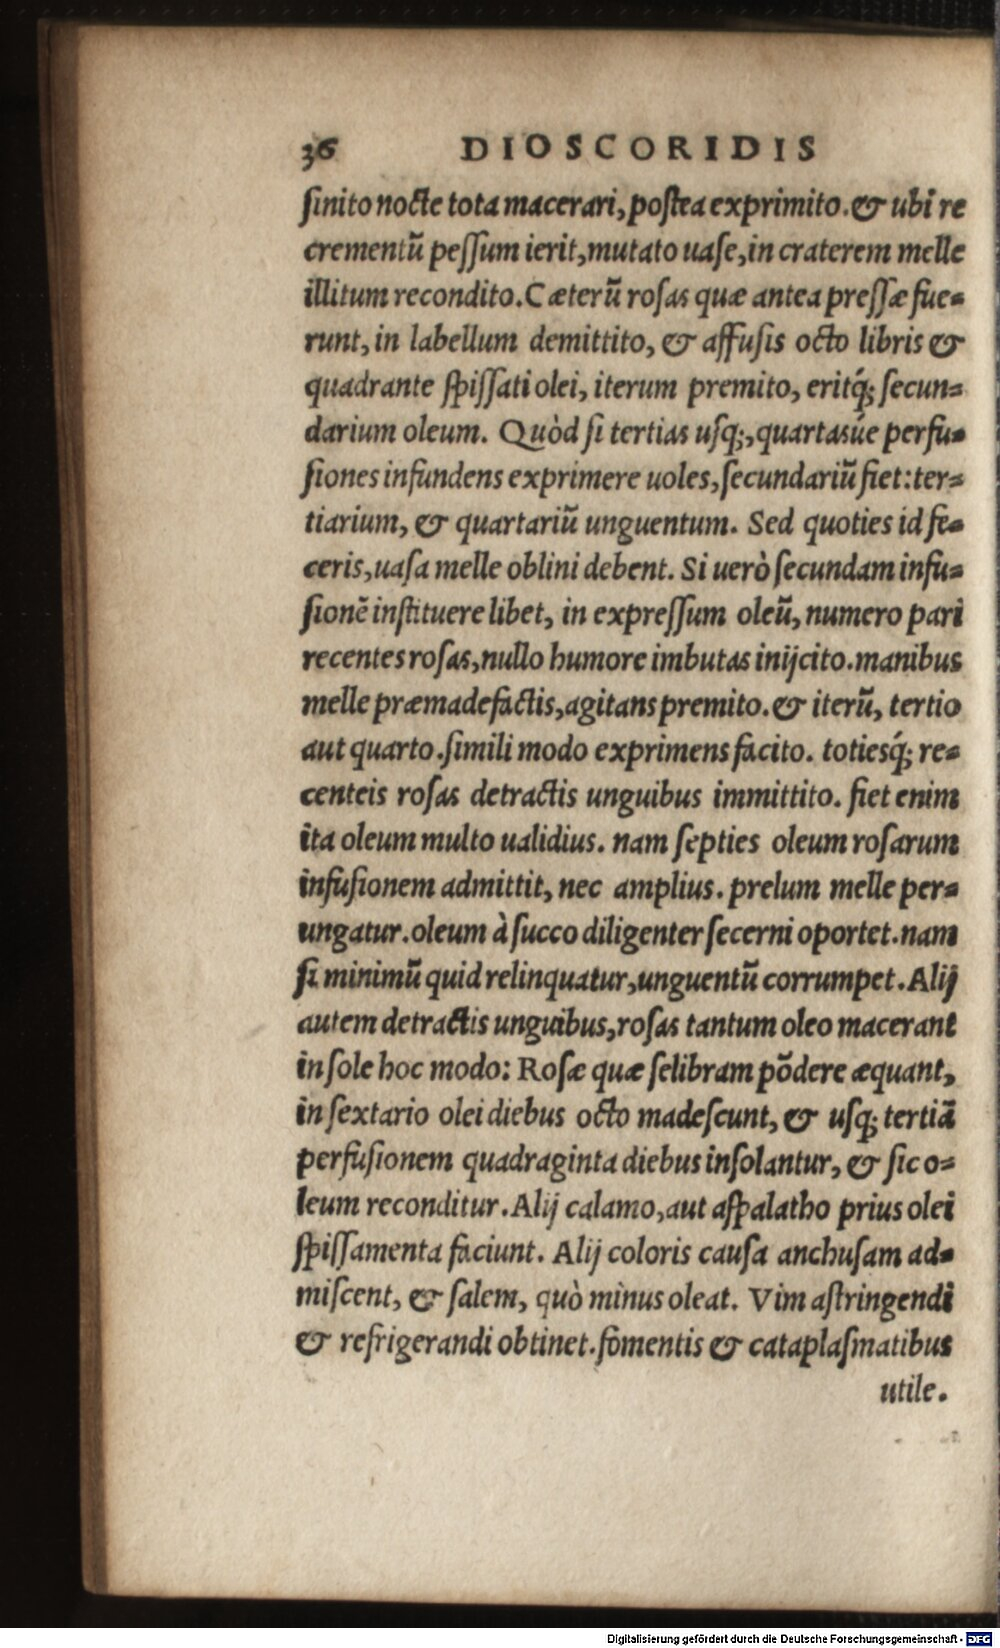 36 DIOSCORIDIS
ſinito nocte tota macerari, poſtea exprimito. & ubi re
crementũ peſſum ierit, mutato uaſe, in craterem melle
illitum recondito. Cæterũ roſas quæ antea preſſæ fue-
runt, in labellum demittito, & affuſis octo libris &
quadrante ſpiſſati olei, iterum premito, eritq́; ſecun-
darium oleum. Quòd ſi tertias uſq;, quartasúe perfu-
ſiones infundens exprimere uoles, ſecundariũ fiet: ter-
tiarium, & quartariũ unguentum. Sed quoties id fe-
ceris, uaſa melle oblini debent. Si uerò ſecundam infu-
ſionẽ inſtituere libet, in expreſſum oleũ, numero pari
recentes roſas, nullo humore imbutas inijcito. manibus
melle præmadefactis, agitans premito. & iterũ, tertio
aut quarto. ſimili modo exprimens facito. totiesq́; re-
centeis roſas detractis unguibus immittito. fiet enim
ita oleum multo ualidius. nam ſepties oleum roſarum
infuſionem admittit, nec amplius. prelum melle per-
ungatur. oleum à ſucco diligenter ſecerni oportet. nam
ſi minimũ quid relinquatur, unguentũ corrumpet. Alij
autem detractis unguibus, roſas tantum oleo macerant
in ſole hoc modo: Roſæ quæ ſelibram põdere æquant,
in ſextario olei diebus octo madeſcunt, & uſq; tertiã
perfuſionem quadraginta diebus inſolantur, & ſic o-
leum reconditur. Alij calamo, aut aſpalatho prius olei
ſpiſſamenta faciunt. Alij coloris cauſa anchuſam ad-
miſcent, & ſalem, quò minus oleat. Vim aſtringendi
& refrigerandi obtinet. fomentis & cataplaſmatibus
utile.
Digitalisierung gefördert durch die Deutsche Forschungsgemeinschaft - DFG